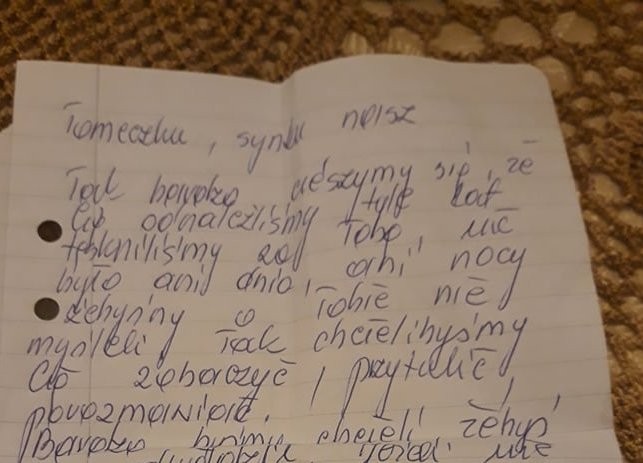 Tomeczku, synku nasz
Tak bardzo cieszymy się, że
Cię odnaleźliśmy tyle lat
tękniliśmy za Tobą, nie
było ani dnia, ani nocy
żebyśmy o Tobie nie
myśleli Tak chcielibyśmy
Cię zobaczyć, przytulić,
porozmawiać.
Bardzo byśmy chcieli żebyś